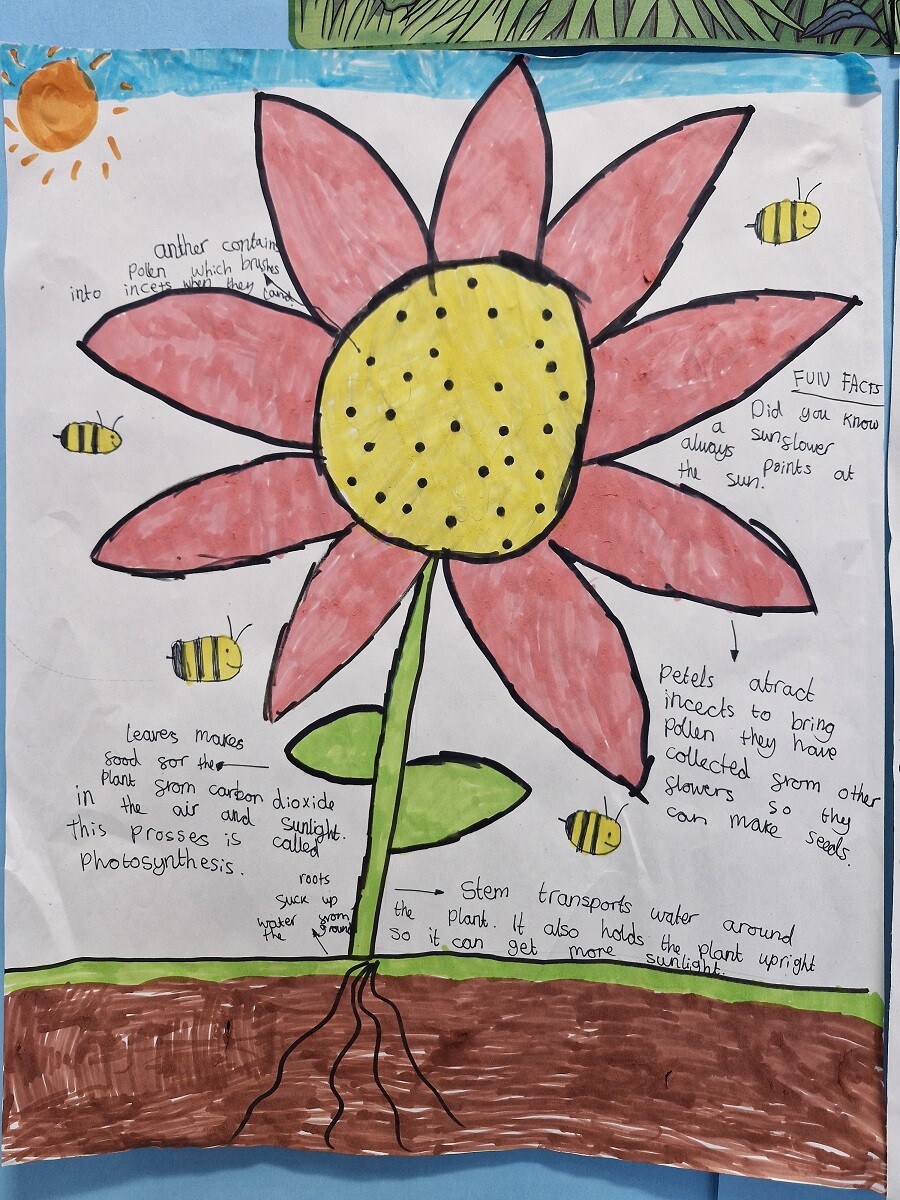 anther contains
pollen which brushes
into incets when they land.
FUN FACTS
Did you know
a sunflower
always points at
the sun.
Petels atract
incects to bring
pollen they have
collected from other
flowers so they
can make seeds.
leaves makes
food for the
plant from carbon dioxide
in the air and sunlight.
this prosses is called
photosynthesis.
roots
suck up
water from
the ground
Stem transports water around
the plant. It also holds the plant upright
so it can get more sunlight.